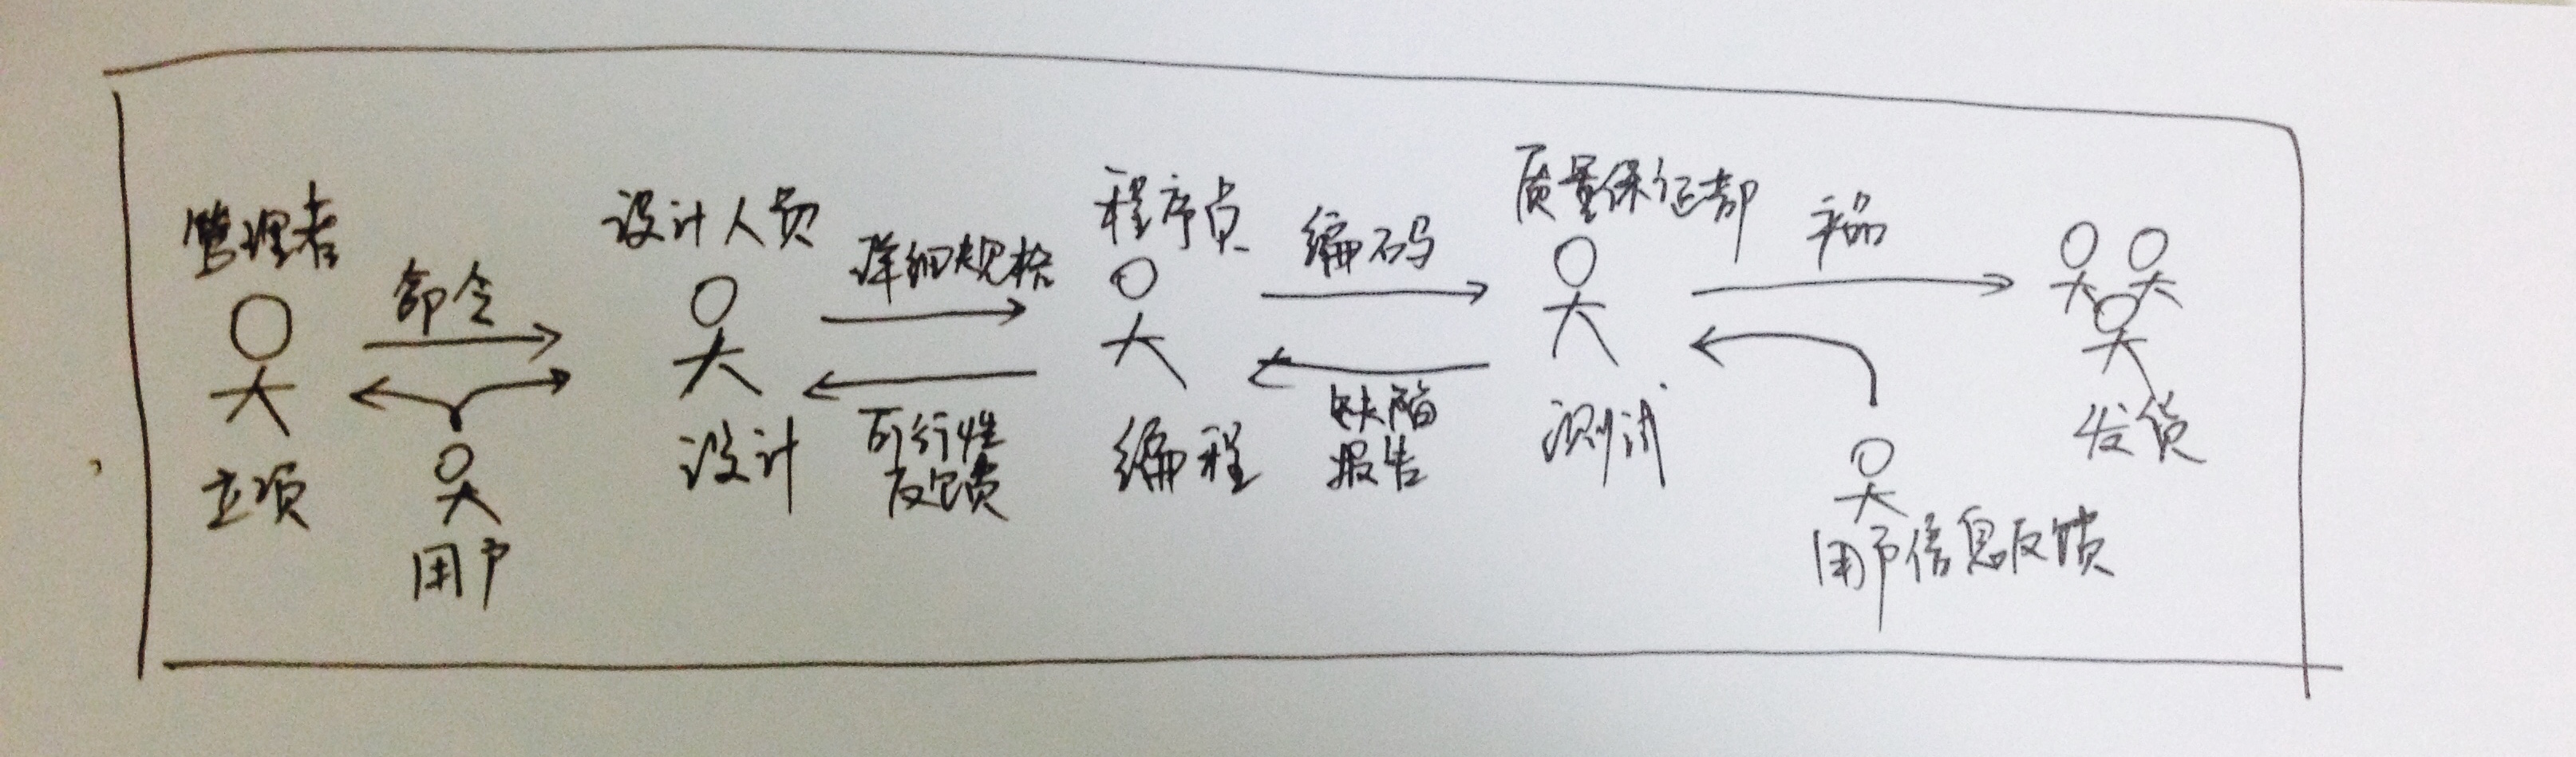 管理者
命令
立项
用户
设计人员
设计
详细规格
可行性
反馈
程序员
编程
编码
缺陷
报告
质量保证部
测试
产品
用户信息反馈
发货